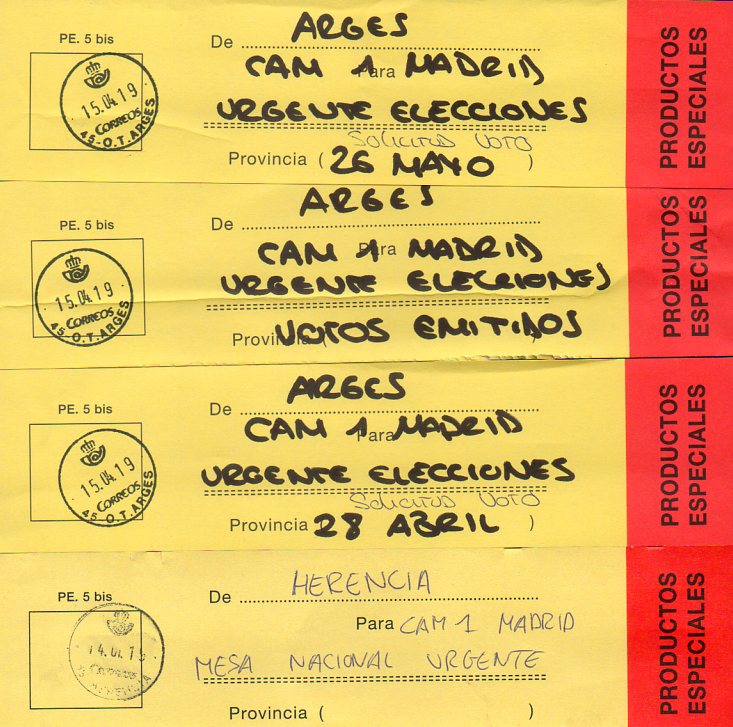 PE. 5 bis
De ARGES
CAM 1 Para MADRID
URGENTE ELECCIONES
SOLICITUD VOTO
Provincia ( 26 MAYO )
15.04.19
CORREOS
45-O.T. ARGES
PRODUCTOS
ESPECIALES
PE. 5 bis
De ARGES
CAM 1 Para MADRID
URGENTE ELECCIONES
Provincia ( VOTOS EMITIDOS
15.04.19
CORREOS
45-O.T. ARGES
PRODUCTOS
ESPECIALES
PE. 5 bis
De ARGES
CAM 1 Para MADRID
URGENTE ELECCIONES
SOLICITUD VOTO
Provincia 28 ABRIL )
15.04.19
CORREOS
45-O.T. ARGES
PRODUCTOS
ESPECIALES
PE. 5 bis
De HERENCIA
Para CAM 1 MADRID
MESA NACIONAL URGENTE
Provincia ( )
CORREOS
PRODUCTOS
ESPECIALES